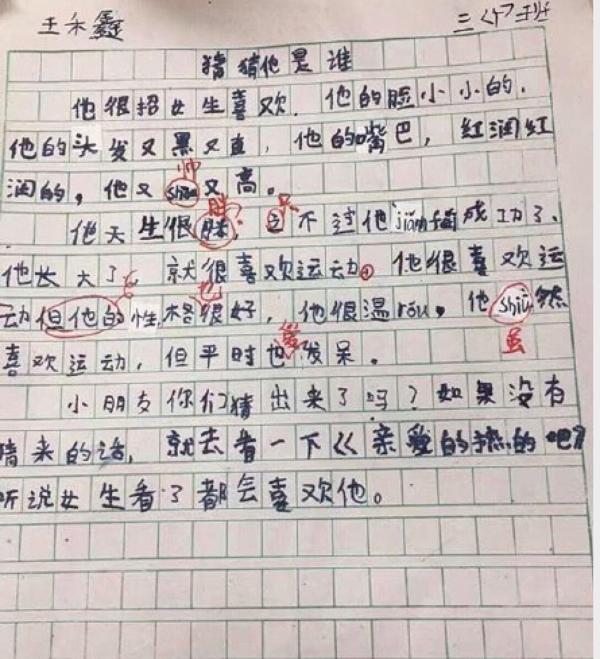 王禾鑫 三
猜猜他是谁
他很招女生喜欢.他的脸小小的,
他的头发又黑又直,他的嘴巴,红润红
帅
润的,他又又高。
胖? 只
他天生很,之不过他jiǎn成功了、
他长大了 就很喜欢运动。他很喜欢运
后 也
动但他的性格很好,他很温róu。他shiū然
爱 虽
喜欢运动,但平时也发呆。
小朋友你们猜出来了吗?如果没有
猜来的话,就去看一下《亲爱的热的吧》
听说女生看了都会喜欢他。